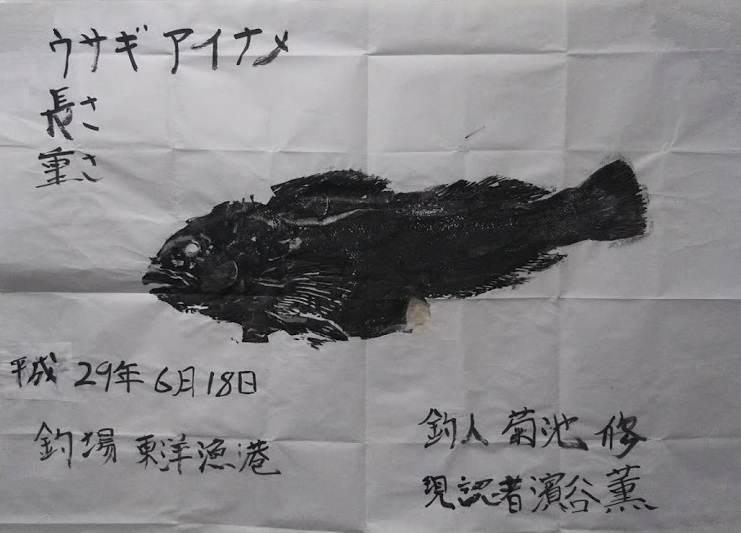 ウサギアイナメ
長さ
重さ
平成 29年 6月18日
釣場 東洋漁港
釣人 菊池 修
現認者 濱谷 薫